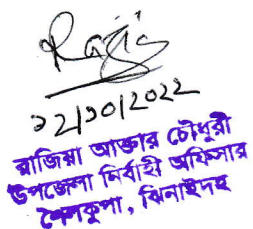 Razia
১২/১০/2022
রাজিয়া আক্তার চৌধুরী
উপজেলা নির্বাহী অফিসার
শৈলকুপা, ঝিনাইদহ